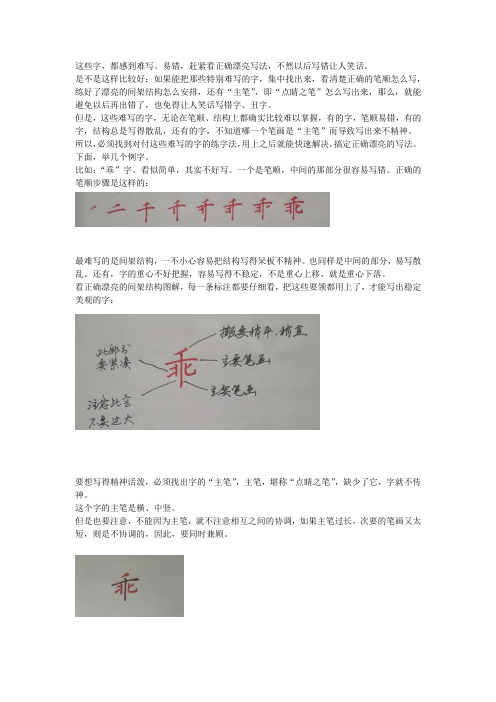 这些字，都感到难写、易错，赶紧看正确漂亮写法，不然以后写错让人笑话。
是不是这样比较好：如果能把那些特别难写的字，集中找出来，看清楚正确的笔顺怎么写，
练好了漂亮的间架结构怎么安排，还有“主笔”，即“点睛之笔”怎么写出来，那么，就能
避免以后再出错了，也免得让人笑话写错字、丑字。
但是，这些难写的字，无论在笔顺、结构上都确实比较难以掌握，有的字，笔顺易错，有的
字，结构总是写得散乱，还有的字，不知道哪一个笔画是“主笔”而导致写出来不精神。
所以，必须找到对付这些难写的字的练字法，用上之后就能快速解决，搞定正确漂亮的写法。
下面，举几个例字。
比如：“乖”字。看似简单，其实不好写。一个是笔顺，中间的那部分很容易写错。正确的
笔顺步骤是这样的：
千 乖
最难写的是间架结构，一不小心容易把结构写得呆板不精神。也同样是中间的部分，易写散
乱。还有，字的重心不好把握，容易写得不稳定，不是重心上移，就是重心下落。
看正确漂亮的间架结构图解，每一条标注都要仔细看，把这些要领都用上了，才能写出稳定
美观的字：
撇要稍平、稍直
此部分
要紧凑
主要笔画
乖
主要笔画
注意此空
不要过大
要想写得精神活泼，必须找出字的“主笔”，主笔，堪称“点睛之笔”，缺少了它，字就不传
神。
这个字的主笔是横、中竖。
但是也要注意，不能因为主笔，就不注意相互之间的协调，如果主笔过长，次要的笔画又太
短，则是不协调的，因此，要同时兼顾。
乖